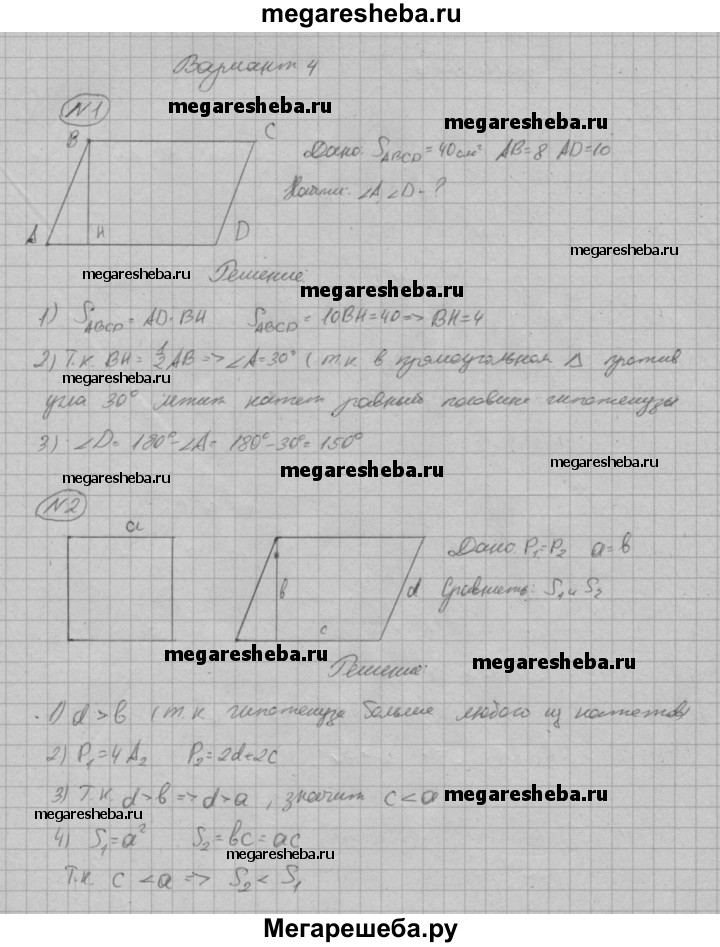 megaresheba.ru
Вариант 4
№1
megaresheba.ru
megaresheba.ru
B C
Дано: S_ABCD = 40см² AB=8 AD=10
Найти: ∠A ∠D - ?
A H D
megaresheba.ru
megaresheba.ru
Решение:
megaresheba.ru
1) S_ABCD = AD·BH S_ABCD = 10BH=40=> BH=4
2) Т.к. BH = 1/2 AB => ∠A=30° (т.к. в прямоугольном Δ против
megaresheba.ru
угла 30° лежит катет равный половине гипотенузы
3) ∠D = 180°-∠A = 180°-30°= 150°
megaresheba.ru
megaresheba.ru
megaresheba.ru
№2
a
Дано: P₁=P₂ a=b
b d
Сравнить: S₁ и S₂
c
megaresheba.ru
megaresheba.ru
Решение:
1) d>b (т.к. гипотенуза больше любого из катетов)
2) P₁=4A₂ P₂=2d+2c
3) Т.к. d>b => d>a , значит c<a
megaresheba.ru
megaresheba.ru
4) S₁=a² S₂=bc=ac
megaresheba.ru
Т.к. c<a => S₂<S₁
megaresheba.ru
Мегарешеба.ру